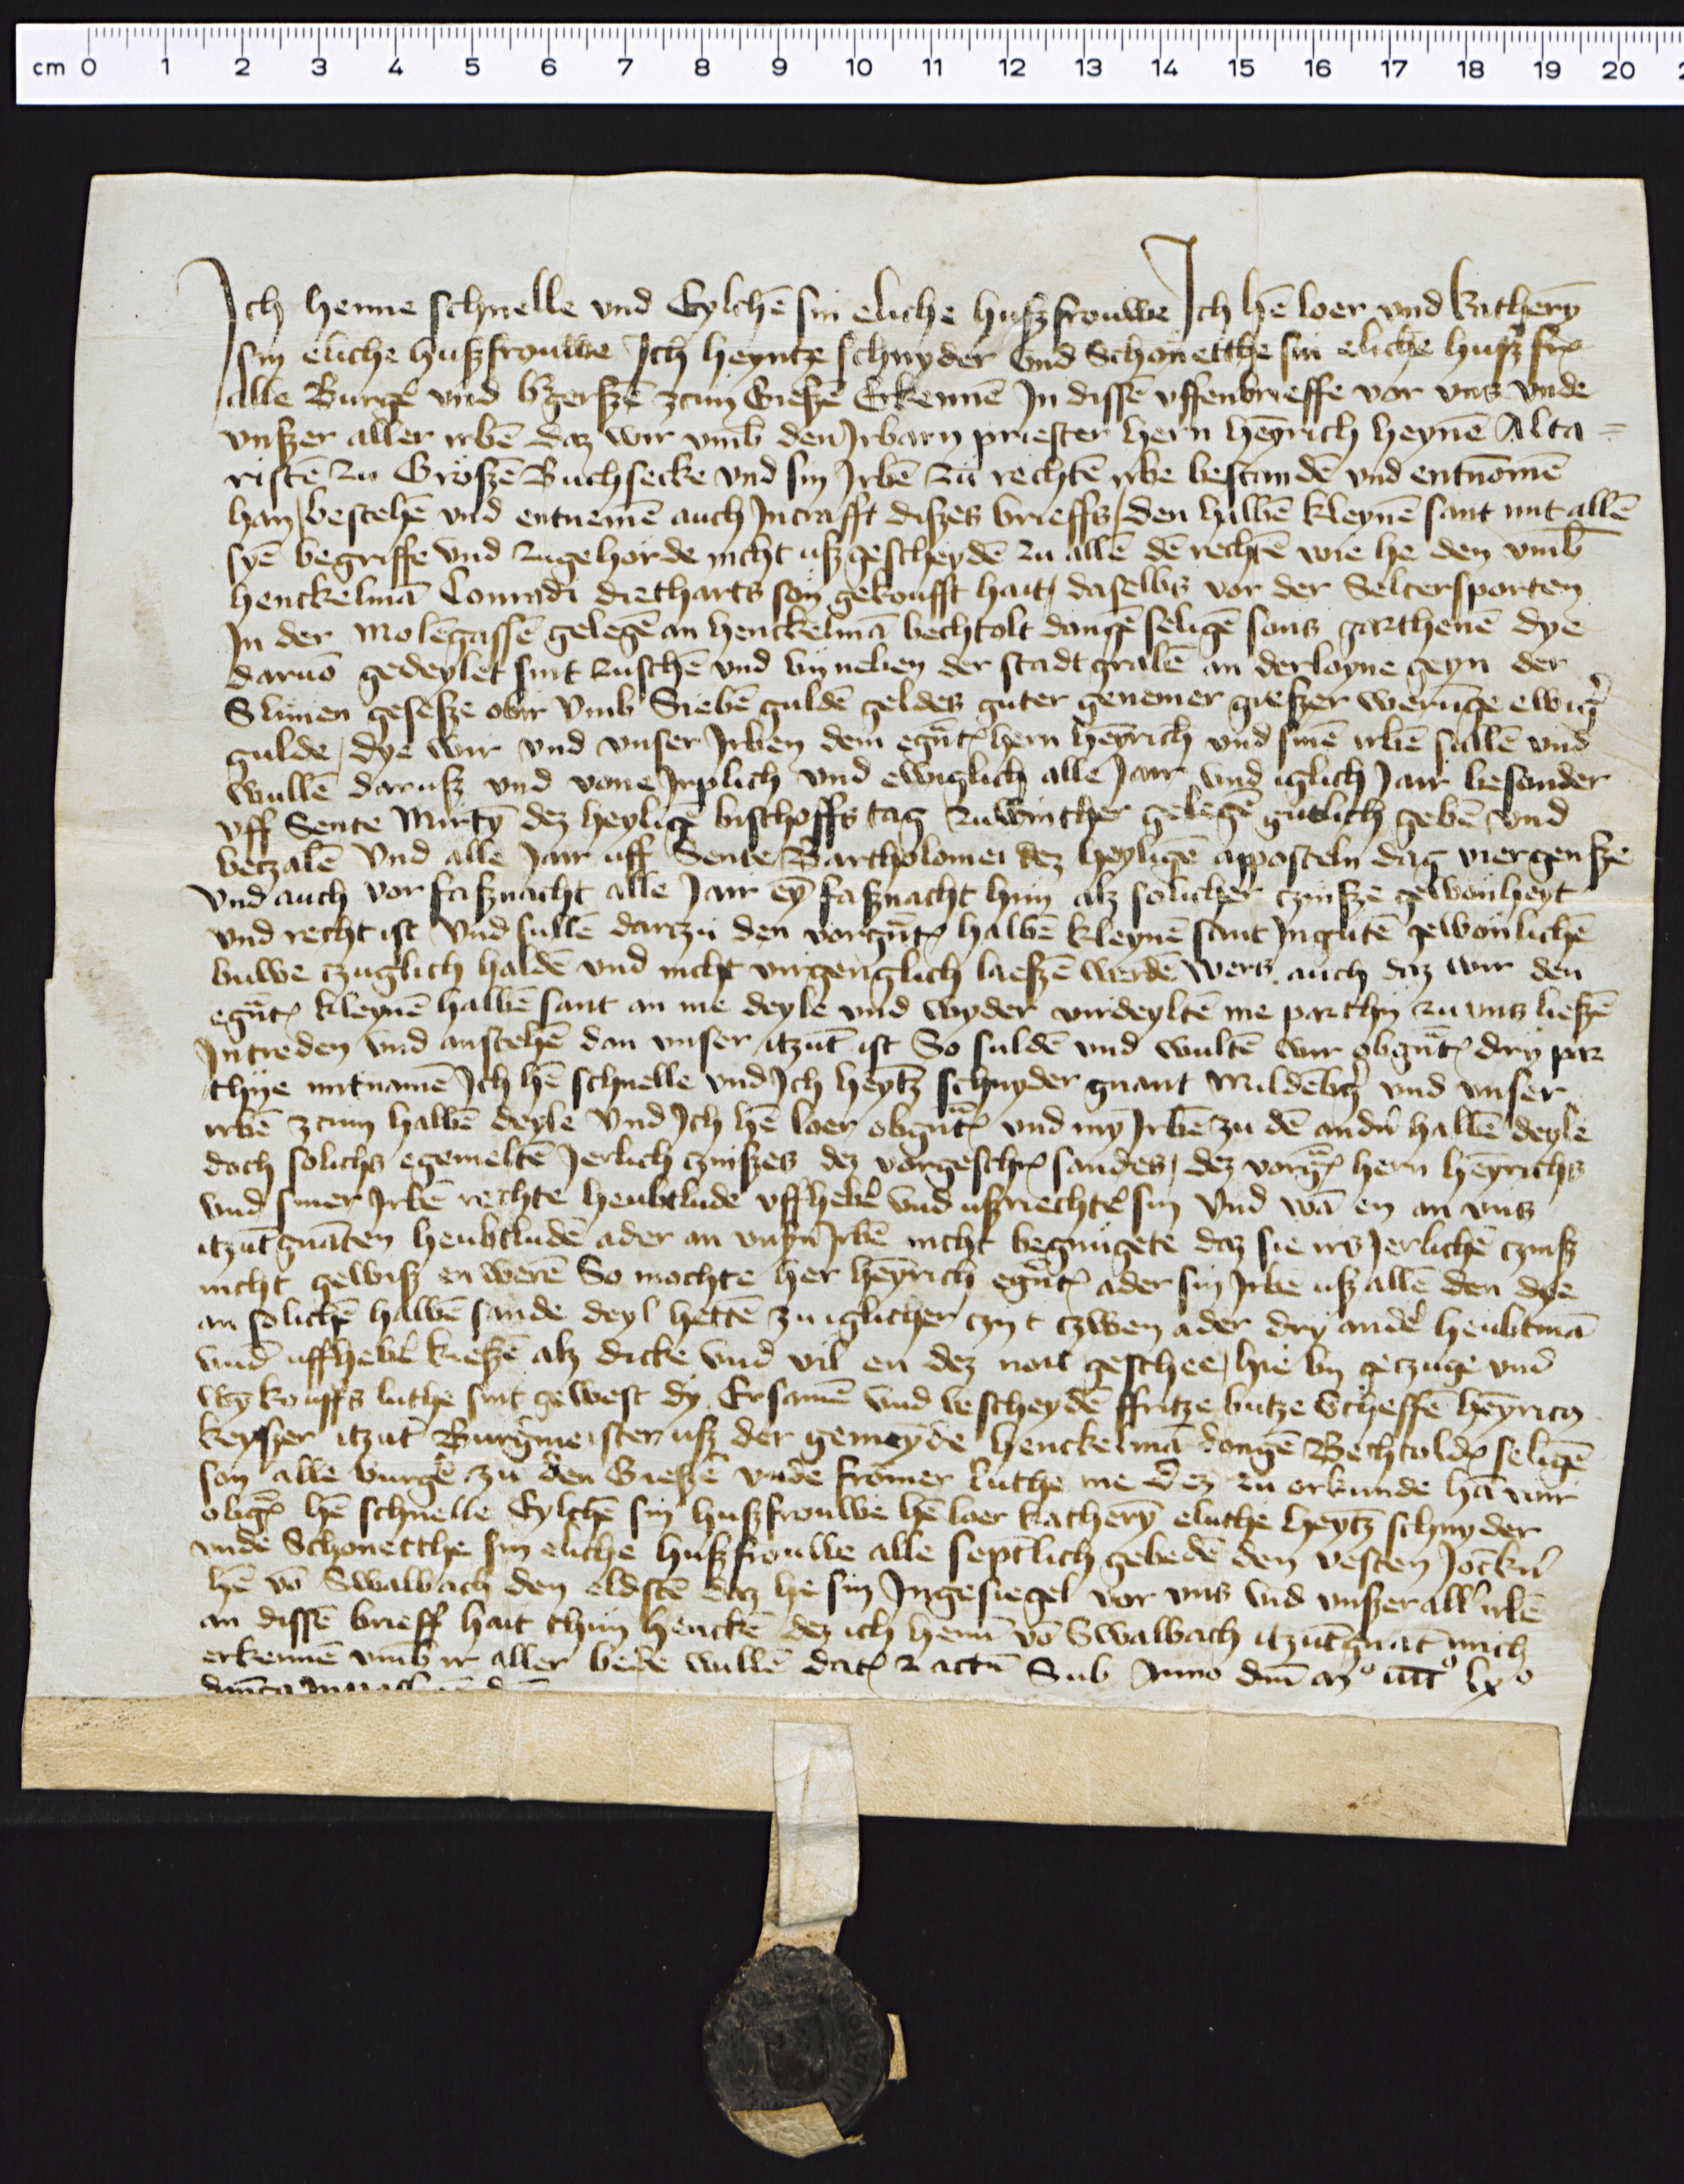 cm 0 1 2 3 4 5 6 7 8 9 10 11 12 13 14 15 16 17 18 19 20
Ich henne schnelle vnd Eylchē sin eliche huszfrouwe Ich hē loer vnd Katherȳ
sin eliche huszfrouwe Ich heyntze schnyder vnd Schonetthe sin eliche husz fr
alle Burgē vnd bgerszē zcum Gieszē Erkennē In dissē vffenbrieffe vor vns vnde
vnszer aller erbē daz wir vmb den Irbarn priester hern heȳrich heynē Alta=
ristē zu Groszē Buchsecke vnd sin Irbē zu rechtē erbe bestandē vnd entnomē
han / bestehē vnd entnemē auch Incrafft diszes brieffs / den halbē kleynē sant mit allē
syē begriffe vnd zugehorde nicht uszgescheydē zu allē dē rechtē wie he den vmb
henckelmā Conradi dietharts son gekoufft hait / daselbs vor der Seltersporten
In der Molēgassē gelegē an henckelmā bechtolt dangē seligē sons garthenē dye
daruō gedeylet sint zuschē vnd by neben der stadt grabē an der loyne geyn der
gesesze obir vmb Siebē guldē geldes guter genemer gieszer werūge ewig
gulde / dye wir vnd vnser Irben dem egn̄t hern heȳrich vnd sinē erbē sullē vnd
wullē darusz vnd vone Jerlich vnd ewiglich alle Jair vnd iglich Jair besonder
vff Sente Mirtȳ dez heyligē bischoffs tag zu winther gelegē gutlich gebē vnd
betzalē Vnd alle Jair uff Sente Bartholomei dez heyligē apposteln dag vier gensze
vnd auch vor fasznacht alle Jair eȳ fasznacht hun alz solicher czinsze gewonheyt
vnd recht ist Vnd sullē darzu den vorgn̄t halbē kleynē sant In gutē gewonlichē
buwe czuglich haldē vnd nicht virgenglich laeszē werdē Wers auch daz wir den
egn̄t kleynē halbē sant an me deyle vnd wyder virdeyltē me parthy zu vns lieszē
Intreden vnd anstehē dan vnser itzūt ist So suldē vnd wultē wir obgn̄t dry par
thye mitnamē Ich hē schnelle vnd Ich heytz schnyder gnant vnd vnser
erbē zcum halbē deyle Vnd Ich hē loer obgn̄t vnd my Irbē zu dē andn̄ halbē deyle
doch solichs egemeltē Jerlich czinszes dez vorgesch sandes / dez vorg hern heȳrichs
vnd siner Irbē rechte heubtlude vffheb vnd uszriecht sin Vnd wā en an vns
itzūt gnātē heubtludē ader an vnszn̄ Irbē nicht begnugete daz sie irs Jerlichē czinsz
nicht gewisz en werē So mochte her heȳrich egn̄t ader sin Irbē usz allē den dye
an solichē halbē sande deyl hettē zu iglicher czyt czwen ader dry ander heubtmā
vnd uffheb kieszē alz dicke vnd vil en dez noit geschee / hie by geczuge vnd
wȳkouffs luthe sint gewest dy Ersamē vnd bescheydē ffritze butze Scheffē heȳrich
keyszer itzūt Burgmeister usz der gemeynde henckelmā dangē Bechtold seligē
son alle burgē zu den Gieszē vnde fromer luthe me Dez zu orkunde hā wir
obg hē schnelle Eylchē sin huszfrouwe hē loer Katherȳ eluthe heytz schnyder
vnde Schonetthe sin eliche huszfrouwe alle septlich gebedē den vesten Jōckn̄
hē vō Swalbach den eldstē daz he sin Ingesiegel vor vns vnd vnszer all irbē
an dissē brieff hait thun hencke dez ich hen̄ vō Swalbach itzūt gnāt mich
erkennē vmb ir aller bede wullē dat z actū Sub Anno dn̄i mº º lxº